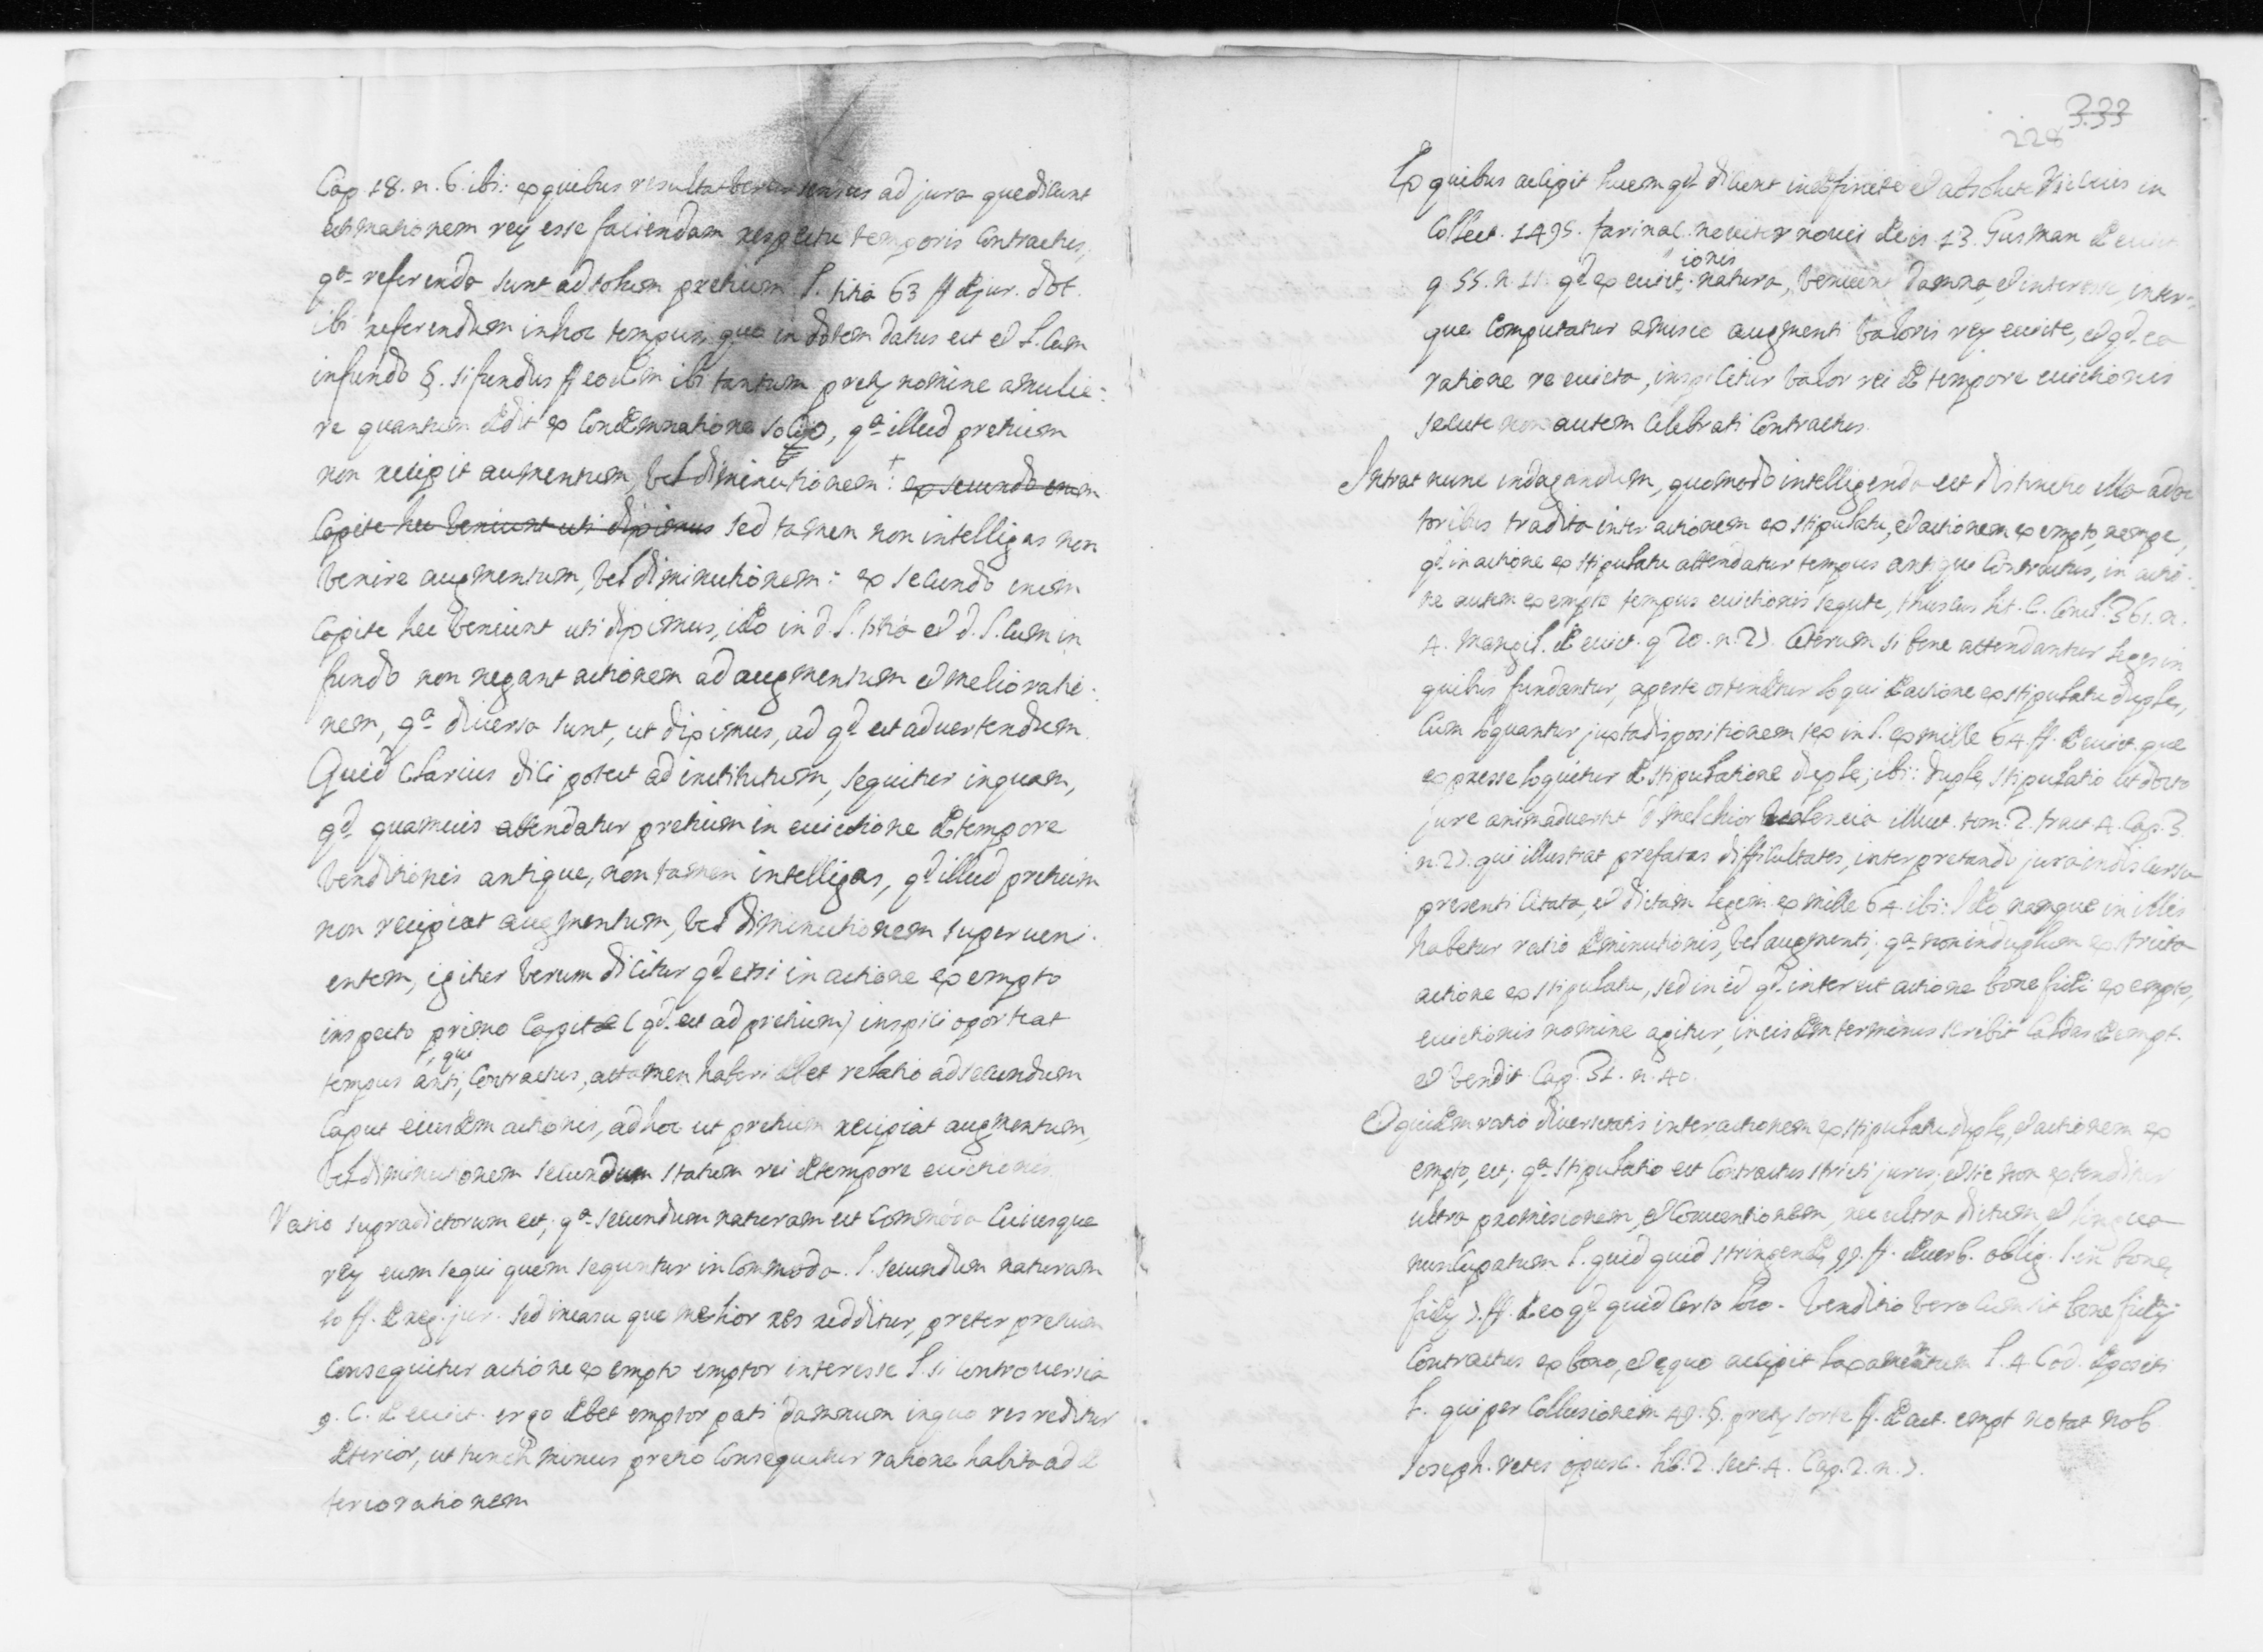 Cap. 18. n. 6. ibi: ex quibus resultat verus sensus ad jura que dicunt
estimationem rey esse faciendam respectu temporis Contractus,
qa referenda sunt ad totum pretium L. titia 63 ff de jur. dot.
ibi referendum in hoc tempus quo in dotem datus est et L. Cum
in fundo §. si fundus ff eodem ibi tantum prety nomine a mulie:
re quantum dedit ex Condemnatione , qa illud pretium
non recipit aumentum, vel diminutionem: ex secundo enim
Capite hec veniunt uti diximus sed tamen non intelligas non
venire augmentum, vel diminutionem: ex secundo enim
Capite hec veniunt uti diximus, ideo in d. L. titia et d. L. Cum in
fundo non negant actionem ad augmentum et melioratio:
nem, qa diversa sunt, ut diximus, ad qd est advertendum.
Quid Clarius dici potest ad institutum, sequitur inquam,
qd quamvis attendatur pretium in evictione de tempore
venditionis antique, non tamen intelligas, qd illud pretium
non recipiat augmentum, vel diminutionem superveni:
entem, igitur verum dicitur qd etsi in actione ex empto
inspecto primo Capite (qd est ad pretium) inspici oporteat
tempus antiqui Contractus, attamen haberi debet relatio ad secundum
Caput eiusdem actionis, ad hoc ut pretium recipiat augmentum,
vel diminutionem secundum statum rei de tempore evictionis
Ratio supradictorum est; qa secundum naturam est Commoda Cuiusque
rey eum sequi quem sequntur inCommoda. L. secundum naturam
10 ff. de reg. jur. sed in casu quo melior res redditur, preter pretium
Consequitur actione ex empto emptor interesse L. si Controversia
9. C. de evict. ergo debet emptor pati damnum in quo res reditur
deterior, ut tunc minus pretio Consequatur ratione habita ad de
teriorationem
333
228
Ex quibus colligit qd dicunt indistincte et absolute in
Collect. 1495. farinac. noviter novis decis. 13. Gusman de evict.
q. 55. n. 11. qd ex evictionis natura, veniunt damna, et interesse, inter
que Computatur amisio augmenti valoris rey evicte, et qd ea
ratione re evicta, inspicitur valor rei de tempore evictionis
secute non autem Celebrati Contractus.
Intrat nunc indagandum, quomodo intelligenda est distinctio illa a doc
toribus tradita inter actionem ex stipulatu, et actionem ex empto, nempe,
qd in actione ex stipulatu attendatur tempus antiqui Contractus, in actio:
ne autem ex empto tempus evictionis sequte, thuscus lit. C. Concl. 361. n.
4. Mangil. de evict. q 20. n. 27. Ceterum si bene attendantur leges in
quibus fundantur, aperte ostenditur loqui de actione ex stipulatu duple,
Cum loquantur juxta dispositionem tex in L. ex mille 64. ff. de evict. que
expresse loquitur de stipulatione duple; ibi: duple stipulatio ut docto
jure animadvertit D. Melchior Valencia illust. tom. 2. tract 4. Cap. 3.
n. 27. qui illustrat prefatas difficultates, interpretando jura in discursu
presenti Citata, et dictam legem ex mille 64. ibi: Ideo namque in illis
habetur ratio diminutionis, vel augmenti; qa non in duplum ex stricta
actione ex stipulatu, sed in id qd interest actione bone fidei ex empto,
evictionis nomine agitur, in eisdem terminis scribit Caldas de empt.
et vendit. Cap. 31. n. 40.
Et quidem ratio diversitatis inter actionem ex stipulatu duple, et actionem ex
empto, est; qa stipulatio est Contractus stricti juris, et sic non extenditur
ultra promisionem, et Conventionem, nec ultra dictum, et lingua
nuncupatum L. quid quid stringende 99. ff. de verb. oblig. L. in bone
fidey 7. ff. de eo qd quid Certo loco. Venditio vero Cum sit bone fidey
Contractus ex bono, et equo accipit laxamentum L. 4 Cod. depositi
L. qui per Collusionem. 49. §. prety sorte ff. de act. empt notat nob
Joseph. retes opusc. lib. 2. sect. 4. Cap. 2. n. 7.